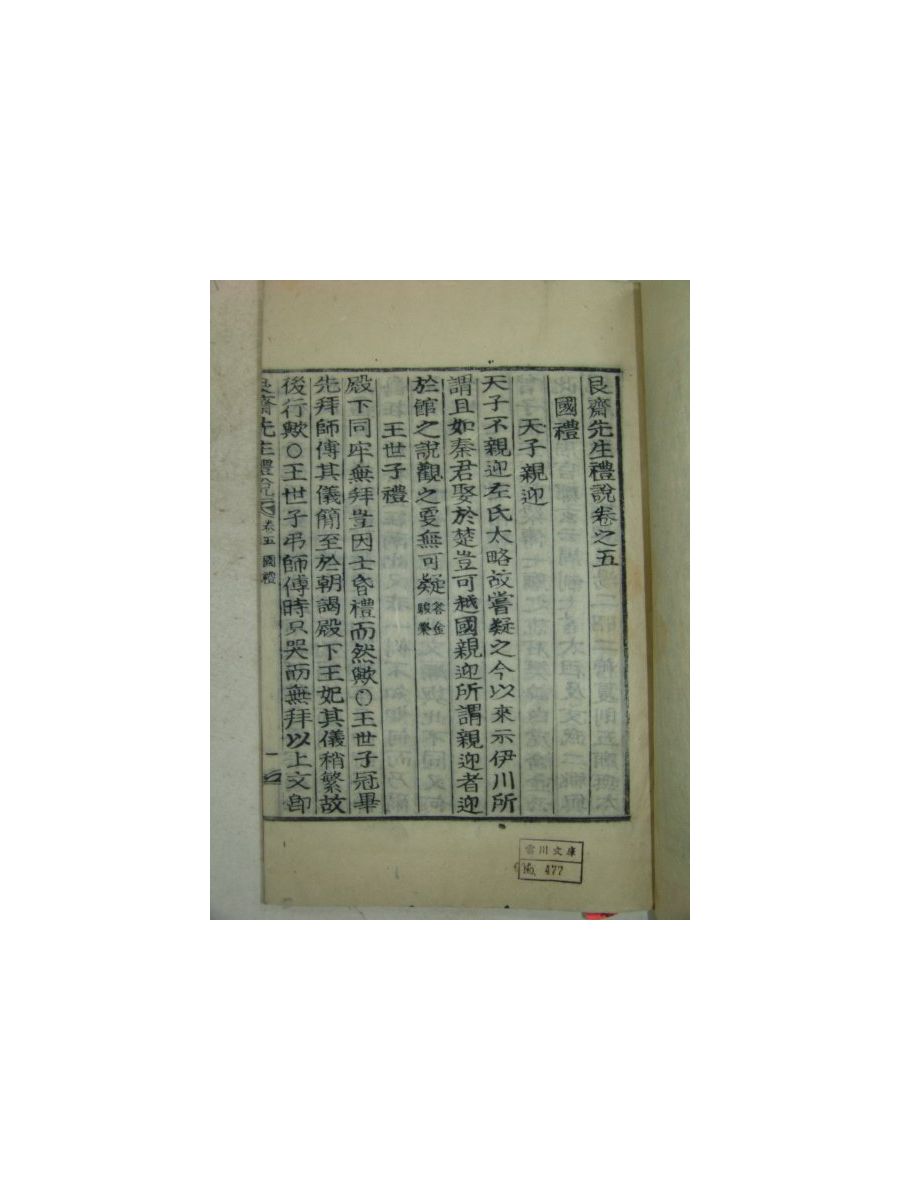 艮齋先生禮說卷之五
國禮
天子親迎
天子不親迎左氏太略故嘗疑之今以來示伊川所
謂且如秦君娶於楚豈可越國親迎所謂親迎者迎
於館之說觀之更無可疑答金駿榮
王世子禮
殿下同牢無拜豈因士昏禮而然歟○王世子冠畢
先拜師傅其儀簡至於朝謁殿下王妃其儀稍繁故
後行歟○王世子弔師傅時只哭而無拜以上文卽
艮齋先生禮說 卷五 國禮 一
雲川文庫
477